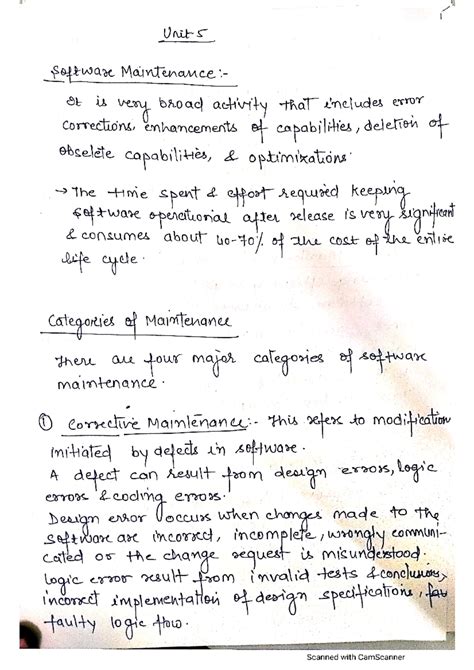 Unit 5
Software Maintenance:-
It is very broad activity that includes error
corrections, enhancements of capabilities, deletion of
obselete capabilities, & optimizations.
→ The time spent & effort required keeping
software operational after release is very significant
& consumes about 40-70% of the cost of the entire
life cycle.
Categories of Maintenance
There are four major categories of software
maintenance.
① Corrective Maintenance:- This refers to modification
initiated by defects in software.
A defect can result from design errors, logic
errors & coding errors.
Design error occurs when changes made to the
software are incorrect, incomplete, wrongly communi-
cated or the change request is misunderstood.
logic error result from invalid tests & conclusions,
incorrect implementation of design specifications,
faulty logic flow.
Scanned with CamScanner